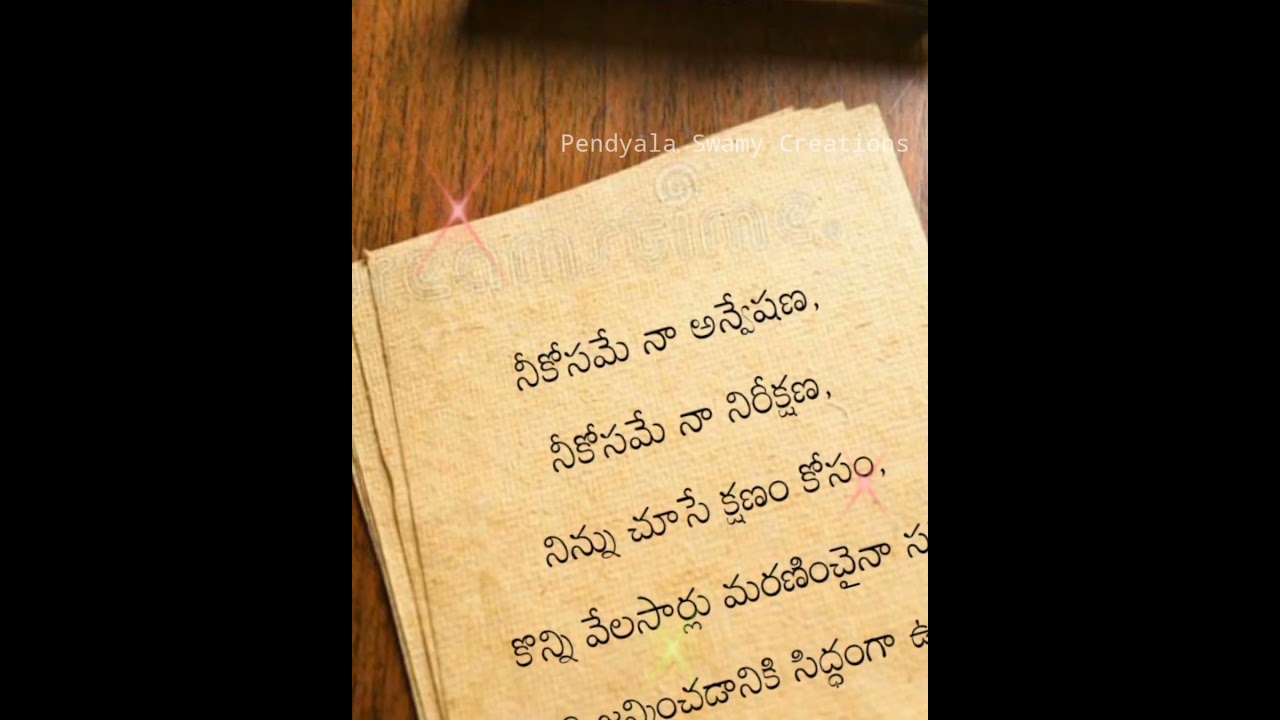 Pendyala Swamy Creations
dreamstime
నీకోసమే నా అన్వేషణ,
నీకోసమే నా నిరీక్షణ,
నిన్ను చూసే క్షణం కోసం,
కొన్ని వేలసార్లు మరణించైనా
జన్మించడానికి సిద్ధంగా